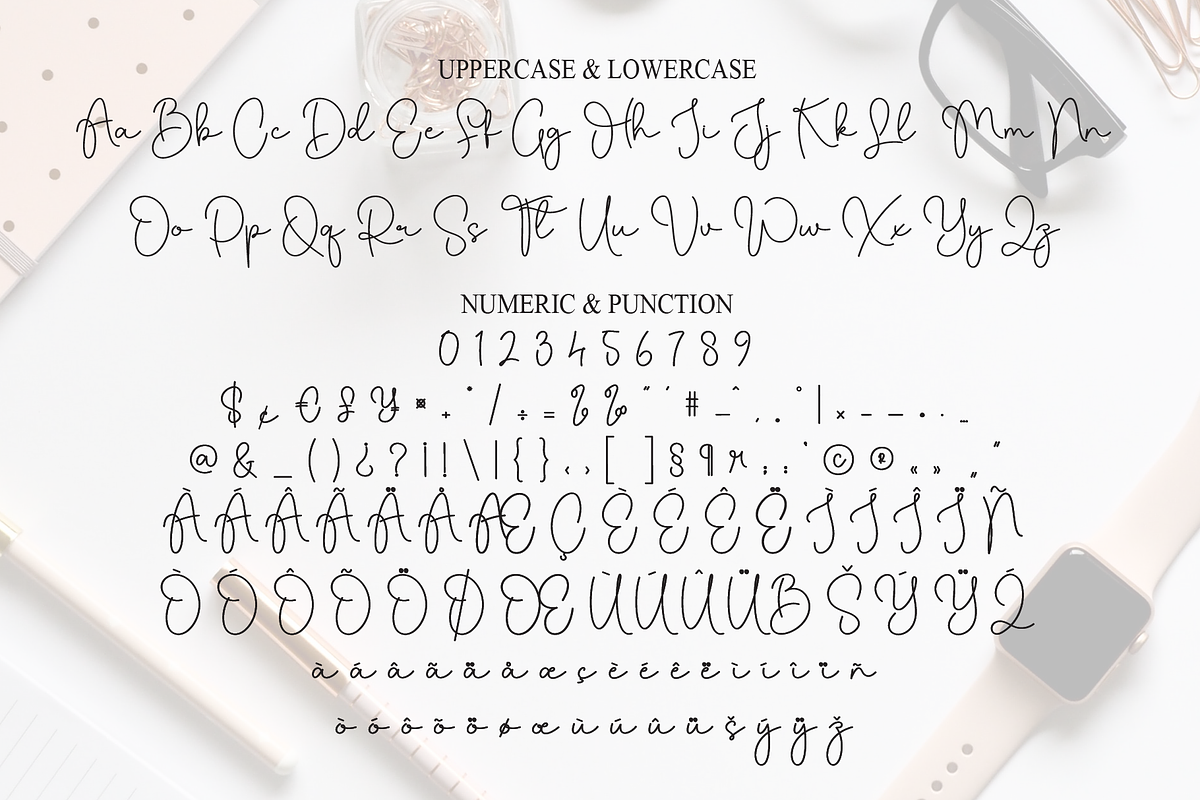 UPPERCASE & LOWERCASE
Aa Bb Cc Dd Ee Ff Gg Hh Ii Jj Kk Ll Mm Nn
Oo Pp Qq Rr Ss Tt Uu Vv Ww Xx Yy Zz
NUMERIC & PUNCTION
0 1 2 3 4 5 6 7 8 9
$ ¢ € £ ¥ ¤ + • / ÷ = ˝ ´ # – ˆ , . ° | × – — • · …
@ & _ ( ) ¿ ? ¡ ! \ | { } ‹ › [ ] § ¶ r ; : ' © ® « » „ "
À Á Â Ã Ä Å Æ Ç È É Ê Ë Ì Í Î Ï Ñ
Ò Ó Ô Õ Ö Ø Œ Ù Ú Û Ü B Š Ý Ÿ Ź
à á â ã ä å æ ç è é ê ë ì í î ï ñ
ò ó ô õ ö ø œ ù ú û ü š ý ÿ ž